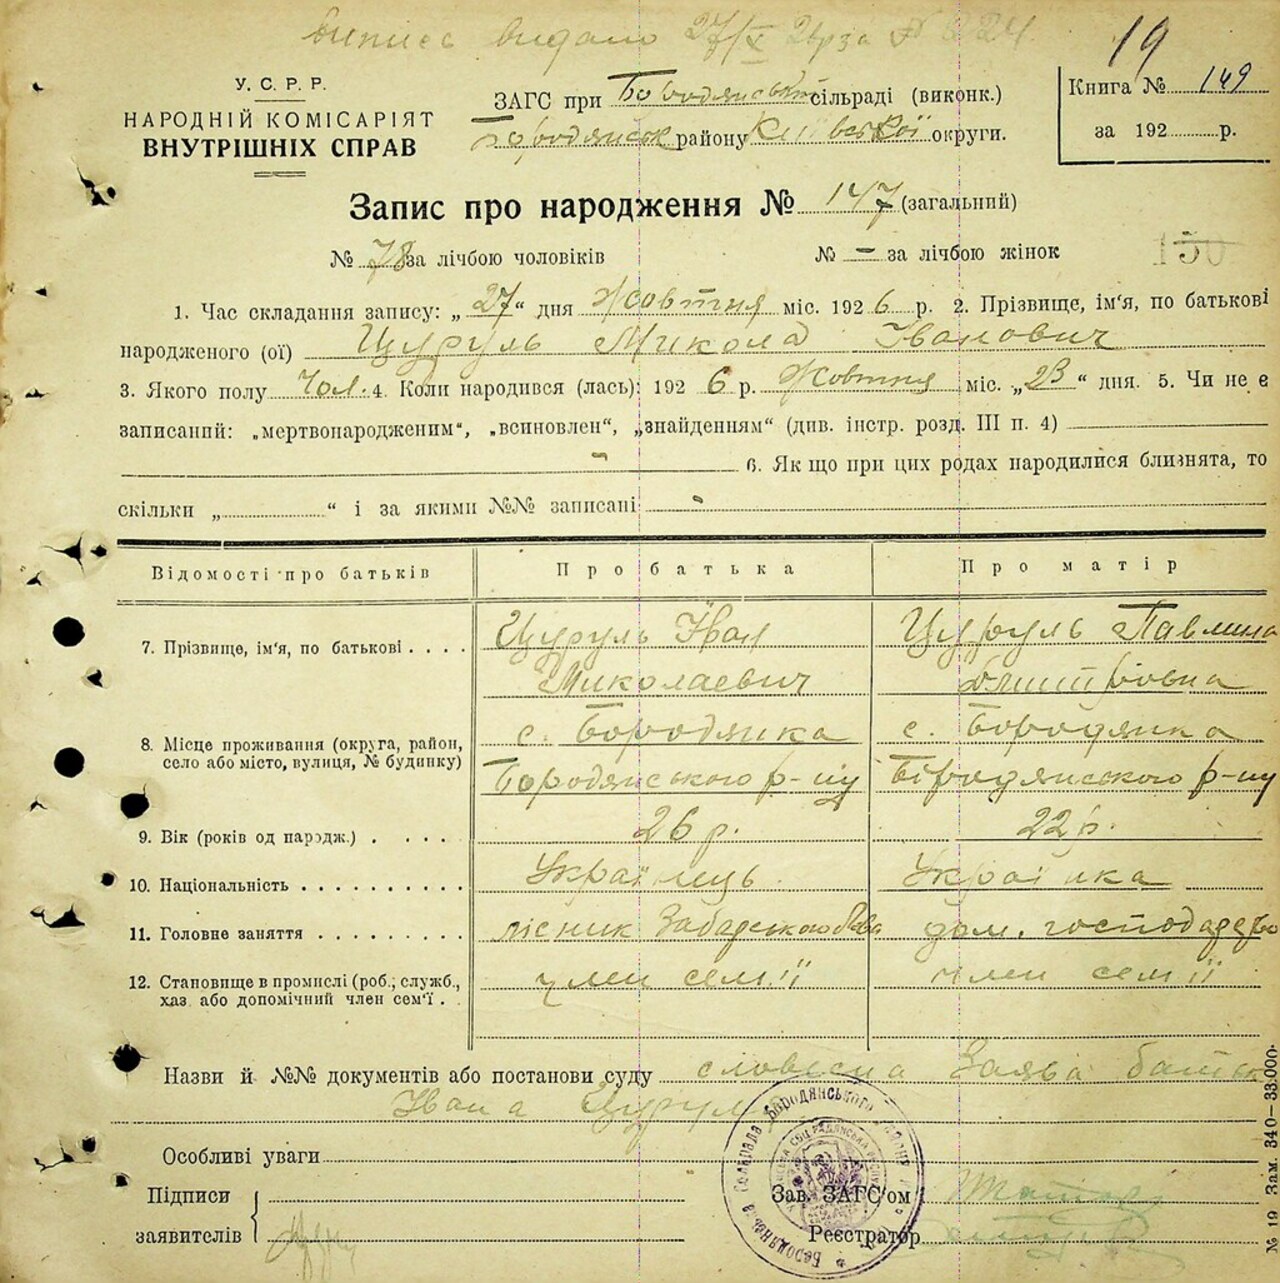 випись видано 27/X 26р за №
19
У. С. Р. Р.
НАРОДНІЙ КОМІСАРІЯТ
ВНУТРІШНІХ СПРАВ
ЗАГС при Бородянськ сільраді (виконк.)
Бородянськ району Київської округи.
Книга № 149
за 192 р.
Запис про народження № 147 (загальний)
№ 78 за лічбою чоловіків № – за лічбою жінок
150
1. Час складання запису: „27“ дня Жовтня міс. 1926 р. 2. Прізвище, ім'я, по батькові
народженого (ої) Цуруль Микола Іванович
3. Якого полу Чол. 4. Коли народився (лась): 1926 р. Жовтня міс. „23“ дня. 5. Чи не є
записаний: „мертвонародженим“, „всиновлен“, „знайденням“ (див. інстр. розд. III п. 4)
6. Як що при цих родах народилися близнята, то
скільки „ “ і за якими №№ записані -
Відомості про батьків Про батька Про матір
7. Прізвище, ім'я, по батькові . . . . Цуруль Іван Цуруль Павлина
Миколаевич Дмитрівна
8. Місце проживання (округа, район, с. Бородянка с. Бородянка
село або місто, вулиця, № будинку) Бородянського р-ну Бородянського р-ну
9. Вік (років од народж.) . . . . 26 р. 22 р.
10. Національність . . . . . . . . . . Українець Українка
11. Головне заняття . . . . . . . . . лісник дом. господарство
12. Становище в промислі (роб., служб., член семʼїї член семʼїї
хаз. або допомічний член сем'ї . .
Назви й №№ документів або постанови суду словесна Заява батьк
Івана Цуруля
Особливі уваги
Підписи
заявителів
Зав. ЗАГС'ом
Реєстратор
Бородянська Сельрада Бородянського району
№ 19 Зам. 340—33.000.